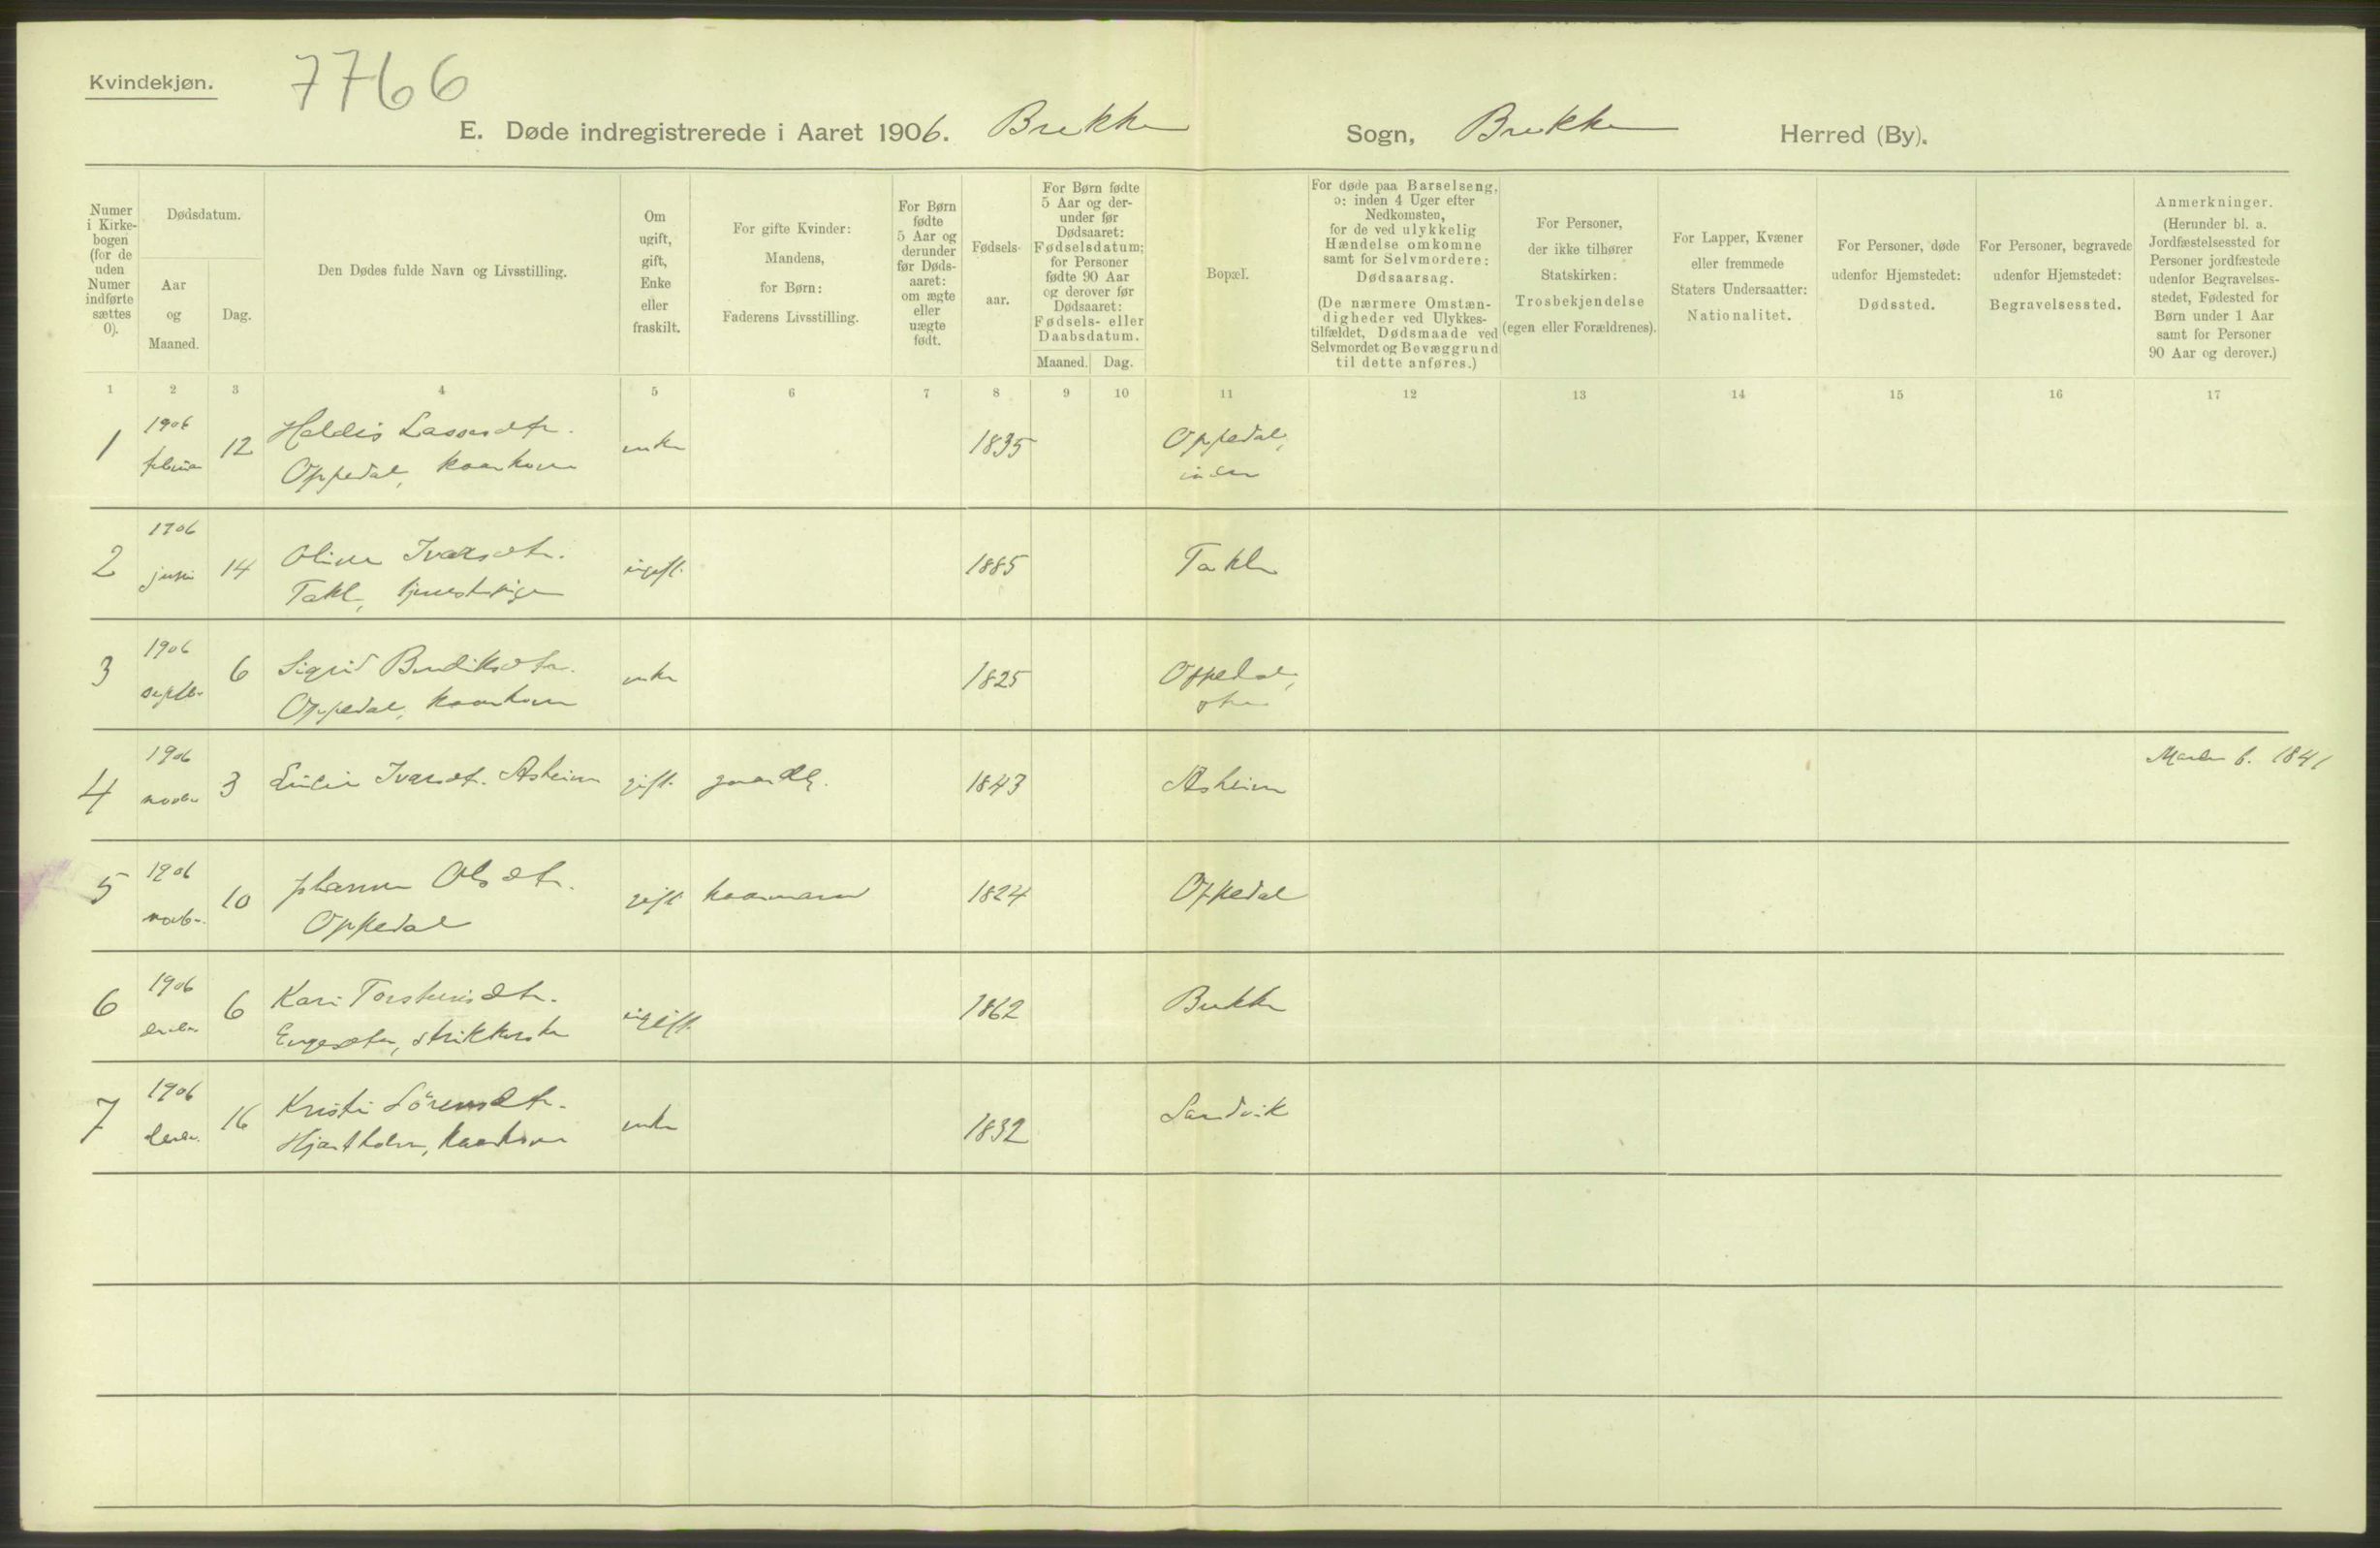 Kvindekjøn.
7766
E. Døde indregistrerede i Aaret 1906. Brekke Sogn, Brekke Herred (By).
Numer i Kirke-bogen (for de uden Numer indførte sættes 0).
Dødsdatum.
Aar og Maaned.
Dag.
Den Dødes fulde Navn og Livsstilling.
Om ugift, gift, Enke eller fraskilt.
For gifte Kvinder: Mandens, for Børn: Faderens Livsstilling.
For Børn fødte 5 Aar og derunder før Døds-aaret: om ægte eller uægte født.
Fødsels-aar.
For Børn fødte 5 Aar og der-under før Dødsaaret: Fødselsdatum; for Personer fødte 90 Aar og derover før Dødsaaret: Fødsels- eller Daabsdatum.
Maaned. Dag.
Bopæl.
For døde paa Barselseng, ɔ: inden 4 Uger efter Nedkomsten, for de ved ulykkelig Hændelse omkomne samt for Selvmordere: Dødsaarsag. (De nærmere Omstæn-digheder ved Ulykkes-tilfældet, Dødsmaade ved Selvmordet og Bevæggrund til dette anføres.)
For Personer, der ikke tilhører Statskirken: Trosbekjendelse (egen eller Forældrenes).
For Lapper, Kvæner eller fremmede Staters Undersaatter: Nationalitet.
For Personer, døde udenfor Hjemstedet: Dødssted.
For Personer, begravede udenfor Hjemstedet: Begravelsessted.
Anmerkninger. (Herunder bl. a. Jordfæstelsessted for Personer jordfæstede udenfor Begravelses-stedet, Fødested for Børn under 1 Aar samt for Personer 90 Aar og derover.)
1 2 3 4 5 6 7 8 9 10 11 12 13 14 15 16 17
1906 Heldis Lassesdtr.
1 februar 12 enke 1835 Oppedal,
Oppedal, kaarkone indre
1906
2 juni 14 Oline Ivarsdtr. ugift. 1885 Takle
Takle, tjenestepige
1906
3 septbr. 6 Sigrid Bendiksdtr. enke 1825 Oppedal,
Oppedal, kaarkone øvre
1906
4 novbr 3 Ivarsdt. Asheim gift. gaardbr. 1843 Asheim
Manden f. 1841
1906
5 novbr. 10 Olsdtr. gift kaarmand 1824 Oppedal
Oppedal
1906
6 decbr 6 Kari Torstensdtr. ugift. 1862 Brekke
Engesæter, strikkerske
1906
7 decbr. 16 Kristi Sörensdtr. enke 1832 Sandvik
Hjartholm, kaarkone